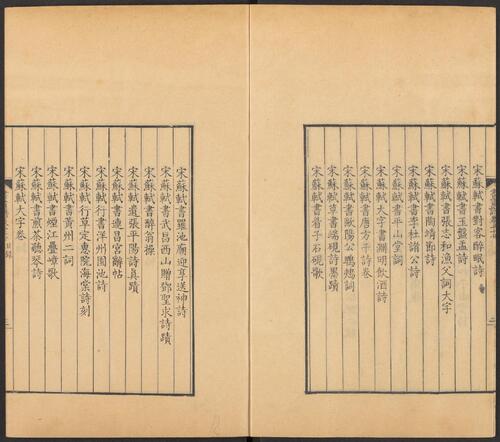 宋蘇軾書對客醉眠詩
宋蘇軾書玉盤盂詩
宋蘇軾書張志和漁父詞大字
宋蘇軾書陶靖節詩
宋蘇軾書李杜諸公詩
宋蘇軾書平山堂詞
宋蘇軾大字書淵明飲酒詩
宋蘇軾書唐方干詩卷
宋蘇軾書歐陽公鵯鵊詞
宋蘇軾草書端硯詩墨蹟
宋蘇軾書眉子石硯歌
宋蘇軾書羅池廟迎享送神詩
宋蘇軾書武昌西山贈鄧聖求詩蹟
宋蘇軾書醉翁操
宋蘇軾書遺張平陽詩真蹟
宋蘇軾書連昌宮辭帖
宋蘇軾行書洋州園池詩
宋蘇軾行草定惠院海棠詩刻
宋蘇軾書黃州二詞
宋蘇軾書煙江疊嶂歌
宋蘇軾書煎茶聽琴詩
宋蘇軾大字卷